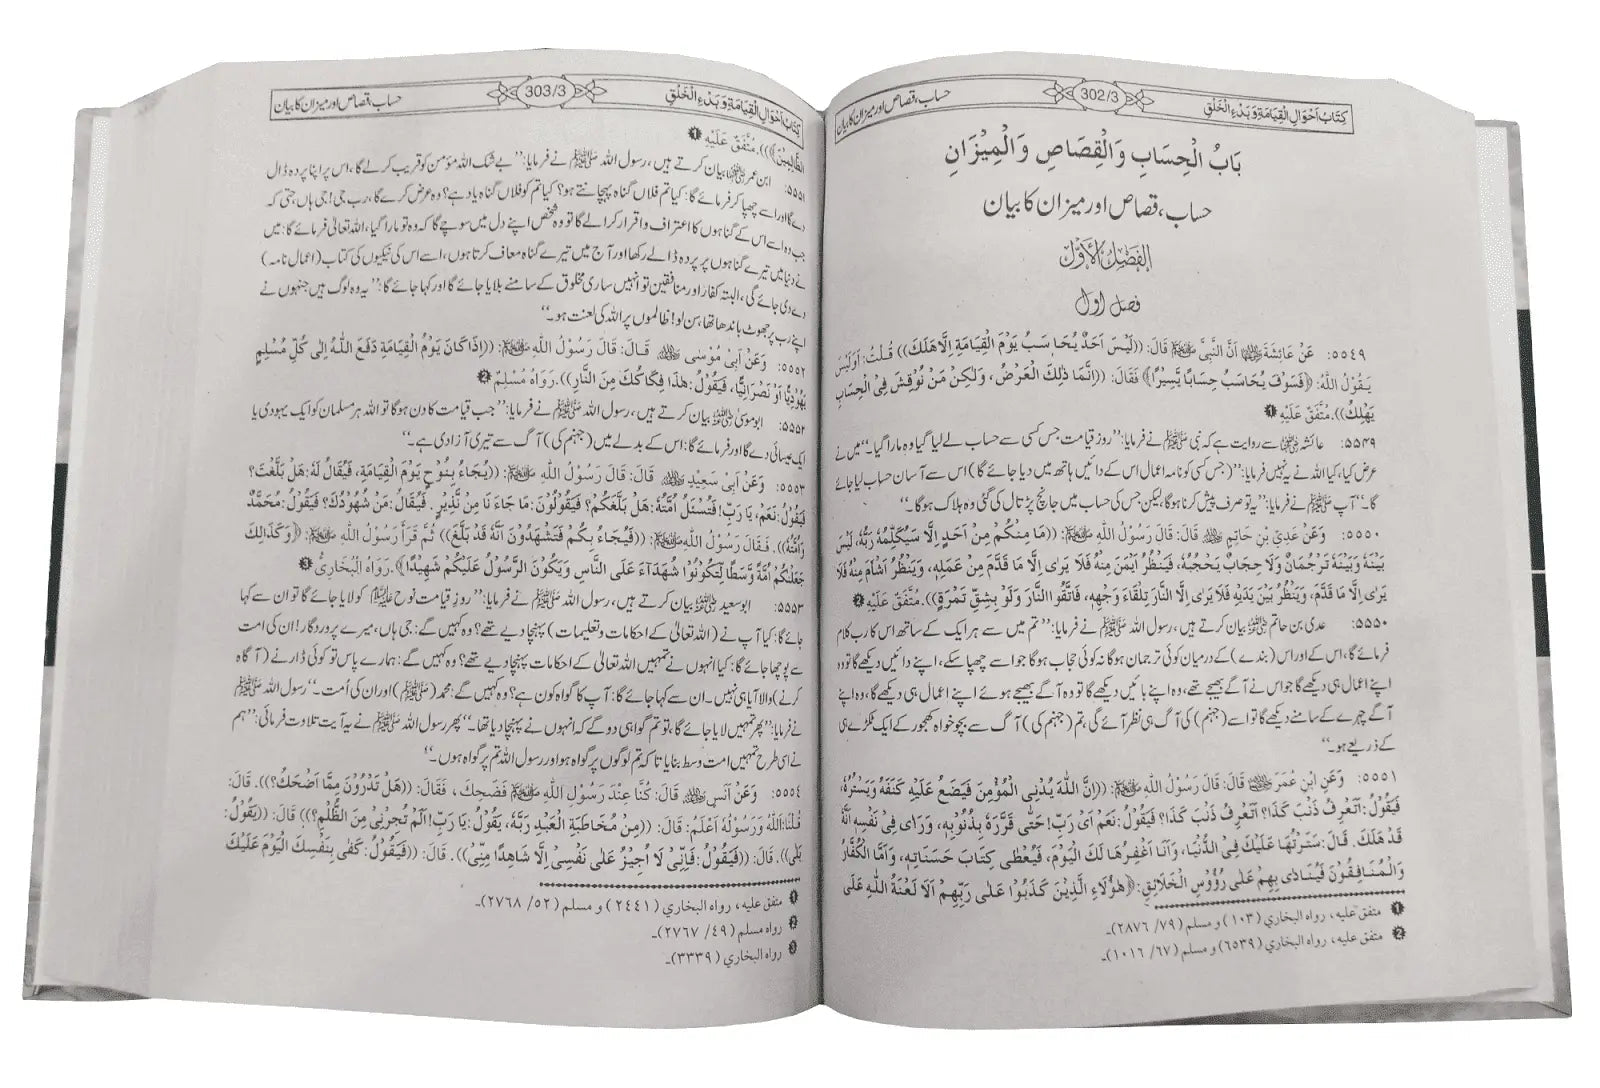 کِتَابُ اَحْوَالِ الْقِیَامَةِ وَ بَدْءِ الْخَلْقِ
302/3
حساب، قصاص اور میزان کا بیان
بَابُ الْحِسَابِ وَالْقِصَاصِ وَالْمِیْزَانِ
حساب، قصاص اور میزان کا بیان
الفَصْلُ الْاَوَّلُ
فصل اول
٥٥٤٩: عَنْ عَائِشَةَ ؓ اَنَّ النَّبِیَّ ﷺ قَالَ: ((لَیْسَ اَحَدٌ یُحَاسَبُ یَوْمَ الْقِیَامَةِ اِلَّا هَلَكَ)) قُلْتُ: اَوَلَیْسَ
یَقُوْلُ اللّٰهُ: ﴿فَسَوْفَ یُحَاسَبُ حِسَابًا یَّسِیْرًا﴾ فَقَالَ: ((اِنَّمَا ذٰلِكَ الْعَرْضُ، وَلٰكِنْ مَنْ نُوْقِشَ فِی الْحِسَابِ
یَهْلِكُ)). مُتَّفَقٌ عَلَیْهِ ❶
۵۵۴۹: عائشہ ؓ سے روایت ہے کہ نبی ﷺ نے فرمایا: ’’روز قیامت جس کسی سے حساب لے لیا گیا وہ مارا گیا۔‘‘ میں نے
عرض کیا، کیا اللہ نے یہ نہیں فرمایا: ’’(جس کسی کو نامہ اعمال اس کے دائیں ہاتھ میں دیا جائے گا) اس سے آسان حساب لیا جائے
گا۔‘‘ آپ ﷺ نے فرمایا: ’’یہ تو صرف پیش کرنا ہوگا، لیکن جس کی حساب میں جانچ پڑتال کی گئی وہ ہلاک ہوگا۔‘‘
٥٥٥٠: وَعَنْ عَدِیِّ بْنِ حَاتِمٍ ؓ قَالَ: قَالَ رَسُوْلُ اللّٰهِ ﷺ: ((مَا مِنْكُمْ مِنْ اَحَدٍ اِلَّا سَیُكَلِّمُهٗ رَبُّهٗ، لَیْسَ
بَیْنَهٗ وَبَیْنَهٗ تَرْجُمَانٌ وَلَا حِجَابٌ یَحْجُبُهٗ، فَیَنْظُرُ اَیْمَنَ مِنْهُ فَلَا یَرٰی اِلَّا مَا قَدَّمَ مِنْ عَمَلِهٖ، وَیَنْظُرُ اَشْأَمَ مِنْهُ فَلَا
یَرٰی اِلَّا مَا قَدَّمَ، وَیَنْظُرُ بَیْنَ یَدَیْهِ فَلَا یَرٰی اِلَّا النَّارَ تِلْقَاءَ وَجْهِهٖ، فَاتَّقُوا النَّارَ وَلَوْ بِشِقِّ تَمْرَةٍ)). مُتَّفَقٌ عَلَیْهِ ❷
۵۵۵۰: عدی بن حاتم ؓ بیان کرتے ہیں، رسول اللہ ﷺ نے فرمایا: ’’تم میں سے ہر ایک کے ساتھ اس کا رب کلام
فرمائے گا، اس کے اور اس (بندے) کے درمیان کوئی ترجمان ہوگا نہ کوئی حجاب ہوگا جو اسے چھپا سکے، اپنے دائیں دیکھے گا تو وہ
اپنے اعمال ہی دیکھے گا جو اس نے آگے بھیجے تھے، وہ اپنے بائیں دیکھے گا تو وہ آگے بھیجے ہوئے اپنے اعمال ہی دیکھے گا، وہ اپنے
آگے چہرے کے سامنے دیکھے گا تو اسے (جہنم) کی آگ ہی نظر آئے گی، تم (جہنم کی) آگ سے بچو خواہ کھجور کے ایک ٹکڑے ہی
کے ذریعے ہو۔‘‘
٥٥٥١: وَعَنِ ابْنِ عُمَرَ ؓ قَالَ: قَالَ رَسُوْلُ اللّٰهِ ﷺ: ((اِنَّ اللّٰهَ یُدْنِی الْمُؤْمِنَ فَیَضَعُ عَلَیْهِ كَنَفَهٗ وَیَسْتُرُهٗ،
فَیَقُوْلُ: اَتَعْرِفُ ذَنْبَ كَذَا؟ اَتَعْرِفُ ذَنْبَ كَذَا؟ فَیَقُوْلُ: نَعَمْ اَیْ رَبِّ! حَتّٰی قَرَّرَهٗ بِذُنُوْبِهٖ، وَرَاٰی فِیْ نَفْسِهٖ اَنَّهٗ
قَدْ هَلَكَ. قَالَ: سَتَرْتُهَا عَلَیْكَ فِی الدُّنْیَا، وَاَنَا اَغْفِرُهَا لَكَ الْیَوْمَ، فَیُعْطٰی كِتَابَ حَسَنَاتِهٖ، وَاَمَّا الْكُفَّارُ
وَالْمُنَافِقُوْنَ فَیُنَادٰی بِهِمْ عَلٰی رُؤُوْسِ الْخَلَائِقِ: ﴿هٰؤُلَاءِ الَّذِیْنَ كَذَبُوْا عَلٰی رَبِّهِمْ اَلَا لَعْنَةُ اللّٰهِ عَلَی
❶ متفق علیه، رواه البخاري (١٠٣) و مسلم (٧٩/ ٢٨٧٦)۔
❷ متفق علیه، رواه البخاري (٦٥٣٩) و مسلم (٦٧/ ١٠١٦)۔
کِتَابُ اَحْوَالِ الْقِیَامَةِ وَ بَدْءِ الْخَلْقِ
303/3
حساب، قصاص اور میزان کا بیان
الظَّالِمِیْنَ﴾)). مُتَّفَقٌ عَلَیْهِ ❶
۵۵۵۱: ابن عمر ؓ بیان کرتے ہیں، رسول اللہ ﷺ نے فرمایا: ’’بے شک اللہ مؤمن کو قریب کرلے گا، اس پر اپنا پردہ ڈال
دے گا اور اسے چھپا کر فرمائے گا: کیا تم فلاں گناہ پہچانتے ہو؟ کیا تم کو فلاں گناہ یاد ہے؟ وہ عرض کرے گا، رب جی! جی ہاں، حتی کہ
جب وہ اسے اس کے گناہوں کا اعتراف و اقرار کرالے گا تو وہ شخص اپنے دل میں سوچے گا کہ وہ تو مارا گیا، اللہ تعالیٰ فرمائے گا: میں
نے دنیا میں تیرے گناہوں پر پردہ ڈالے رکھا اور آج میں تیرے گناہ معاف کرتا ہوں، اسے اس کی نیکیوں کی کتاب (اعمال نامہ)
دے دی جائے گی، البتہ کفار اور منافقین تو انہیں ساری مخلوق کے سامنے بلایا جائے گا اور کہا جائے گا: ’’یہ وہ لوگ ہیں جنہوں نے
اپنے رب پر جھوٹ باندھا تھا، سن لو! ظالموں پر اللہ کی لعنت ہو۔‘‘
٥٥٥٢: وَعَنْ اَبِیْ مُوْسٰی ؓ قَالَ: قَالَ رَسُوْلُ اللّٰهِ ﷺ: ((اِذَا كَانَ یَوْمُ الْقِیَامَةِ دَفَعَ اللّٰهُ اِلٰی كُلِّ مُسْلِمٍ
یَهُوْدِیًّا اَوْ نَصْرَانِیًّا، فَیَقُوْلُ: هٰذَا فِكَاكُكَ مِنَ النَّارِ)). رَوَاهُ مُسْلِمٌ ❷
۵۵۵۲: ابوموسیٰ ؓ بیان کرتے ہیں، رسول اللہ ﷺ نے فرمایا: ’’جب قیامت کا دن ہوگا تو اللہ ہر مسلمان کو ایک یہودی یا
ایک عیسائی دے گا اور فرمائے گا: اس کے بدلے میں (جہنم کی) آگ سے تیری آزادی ہے۔‘‘
٥٥٥٣: وَعَنْ اَبِیْ سَعِیْدٍ ؓ قَالَ: قَالَ رَسُوْلُ اللّٰهِ ﷺ: ((یُجَاءُ بِنُوْحٍ یَوْمَ الْقِیَامَةِ، فَیُقَالُ لَهٗ: هَلْ بَلَّغْتَ؟
فَیَقُوْلُ: نَعَمْ، یَا رَبِّ! فَتُسْئَلُ اُمَّتُهٗ: هَلْ بَلَّغَكُمْ؟ فَیَقُوْلُوْنَ: مَا جَاءَ نَا مِنْ نَّذِیْرٍ. فَیُقَالُ: مَنْ شُهُوْدُكَ؟ فَیَقُوْلُ: مُحَمَّدٌ
وَاُمَّتُهٗ)). فَقَالَ رَسُوْلُ اللّٰهِ ﷺ: ((فَیُجَاءُ بِكُمْ فَتَشْهَدُوْنَ اَنَّهٗ قَدْ بَلَّغَ)) ثُمَّ قَرَاَ رَسُوْلُ اللّٰهِ ﷺ: ﴿وَكَذٰلِكَ
جَعَلْنٰكُمْ اُمَّةً وَّسَطًا لِّتَكُوْنُوْا شُهَدَآءَ عَلَی النَّاسِ وَیَكُوْنَ الرَّسُوْلُ عَلَیْكُمْ شَهِیْدًا﴾. رَوَاهُ الْبُخَارِیُّ ❸
۵۵۵۳: ابوسعید ؓ بیان کرتے ہیں، رسول اللہ ﷺ نے فرمایا: ’’روزِ قیامت نوح علیہ السلام کو لایا جائے گا تو ان سے کہا
جائے گا: کیا آپ نے (اللہ تعالیٰ کے احکامات و تعلیمات) پہنچا دیے تھے؟ وہ کہیں گے: جی ہاں، میرے پروردگار! ان کی امت
سے پوچھا جائے گا: کیا انہوں نے تمہیں اللہ تعالیٰ کے احکامات پہنچا دیے تھے؟ وہ کہیں گے: ہمارے پاس تو کوئی ڈرانے (آگاہ
کرنے) والا آیا ہی نہیں۔ ان سے کہا جائے گا: آپ کا گواہ کون ہے؟ وہ کہیں گے: محمد (ﷺ) اور ان کی اُمت۔‘‘ رسول اللہ ﷺ
نے فرمایا: ’’پھر تمہیں لایا جائے گا، تو تم گواہی دو گے کہ انہوں نے پہنچا دیا تھا۔‘‘ پھر رسول اللہ ﷺ نے یہ آیت تلاوت فرمائی: ’’ہم
نے اسی طرح تمہیں امت وسط بنایا تاکہ تم لوگوں پر گواہ ہو اور رسول اللہ تم پر گواہ ہوں۔‘‘
٥٥٥٤: وَعَنْ اَنَسٍ ؓ قَالَ: كُنَّا عِنْدَ رَسُوْلِ اللّٰهِ ﷺ فَضَحِكَ، فَقَالَ: ((هَلْ تَدْرُوْنَ مِمَّا اَضْحَكُ؟)). قَالَ:
قُلْنَا: اَللّٰهُ وَرَسُوْلُهٗ اَعْلَمُ: قَالَ: ((مِنْ مُخَاطَبَةِ الْعَبْدِ رَبَّهٗ، یَقُوْلُ: یَا رَبِّ! اَلَمْ تُجِرْنِیْ مِنَ الظُّلْمِ؟)) قَالَ: ((یَقُوْلُ:
بَلٰی)). قَالَ: ((فَیَقُوْلُ: فَاِنِّیْ لَا اُجِیْزُ عَلٰی نَفْسِیْ اِلَّا شَاهِدًا مِنِّیْ)). قَالَ: ((فَیَقُوْلُ: كَفٰی بِنَفْسِكَ الْیَوْمَ عَلَیْكَ
❶ متفق علیه، رواه البخاري (٢٤٤١) و مسلم (٥٢/ ٢٧٦٨)۔
❷ رواه مسلم (٤٩/ ٢٧٦٧)۔
❸ رواه البخاري (٣٣٣٩)۔